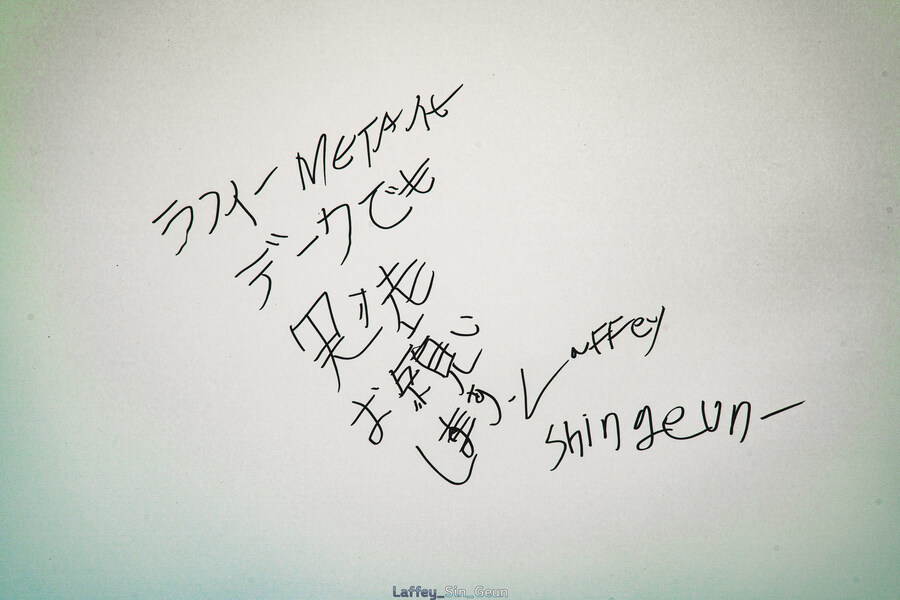 ラフィー META化
データでも
お願い
します.
Laffey
shingeun
Laffey_Sin_Geun